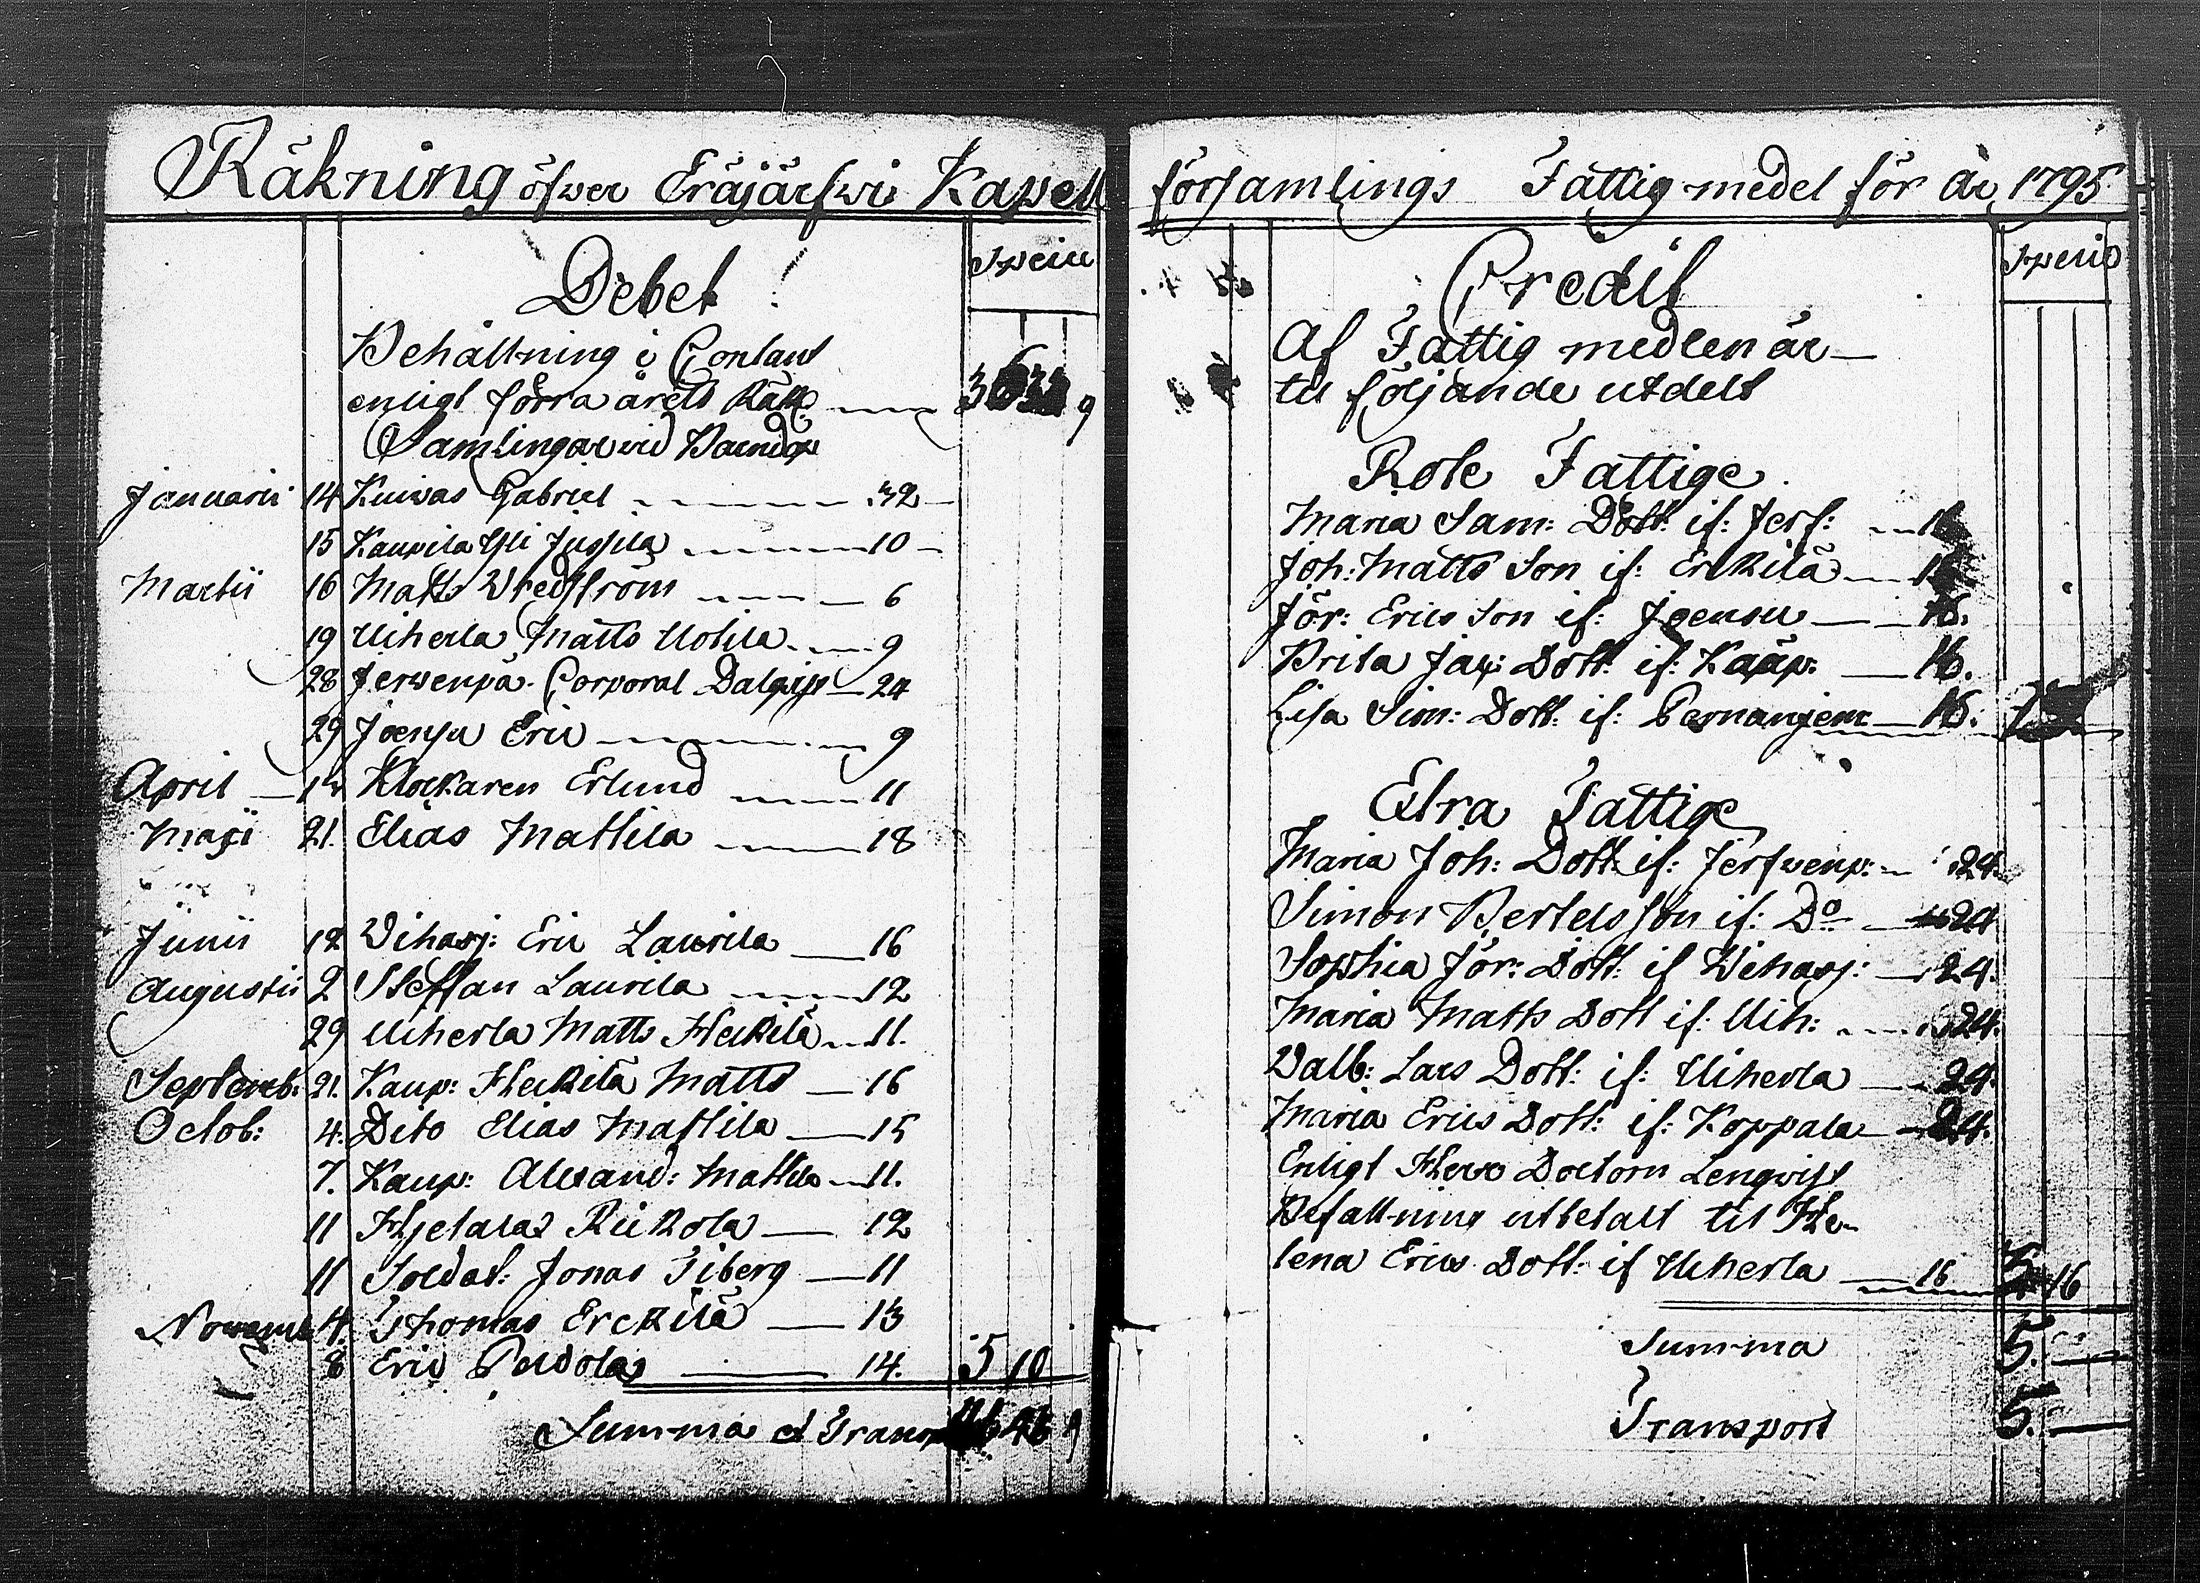 Räkning öfver Eräjärfwi Kapell
Debet
Specie
Behållning i Contant
enligt förra årets Räkn:
Samlingar vid Barndop
Januarii 14 Kuivas Gabriel 32
15 Kaupila Yli Jussila 10
Martii 16 Matts Wredström 6
19 Uiherla Matts Uotila 9
28 Jerwenpä Corporal 24
29 Joensu Eric 9
April Klockaren Erlund 11
Maji 21. Elias Mattila 18
Junii 12 Vihasj: Eric Laurila 16
Augustii 2 Steffan Laurila 12
29 Uiherla Matts Heikilä 11.
Septemb: 21. Kaup: Heikilä Matts 16
Octob: 4. Dito Elias Mattila 15
7. Kaup: Alexand: Mattila 11.
11 Hjetalas Riikola 12
11 Soldat: Jonas Tiberg 11
Novemb 4. Thomas Erckilä 13
8 Eric 14. 5 10
Summa et Transp
församlings Fattig medel för år 1795
Credit
Specie
Af Fattig medlen är
til följande utdelt
Rote Fattige
Maria Sam: Dott: if: Jerf:
Joh: Matts Son if: Erkilä
Jör: Erics Son if: Joensu 16.
Brita Jac: Dott: if: Kaup: 16.
Lisa Sim: Dott: if: 16.
Extra Fattige
Maria Joh: Dott: if: Jerfwenp: 24.
Simon Bertelsson if: Do 24
Sophia Jör: Dott: if Wihasj: 24.
Maria Matts Dott if: Uih: 24.
Valb: Lars Dott: if: Uiherla 24.
Maria Erics Dott: if: Koppala 24.
Enligt Herr Doctorn Lenqvist
Befallning utbetalt til He-
lena Erics Dott: if Uiherla 16 16
Summa 5. —
Transport 5. —